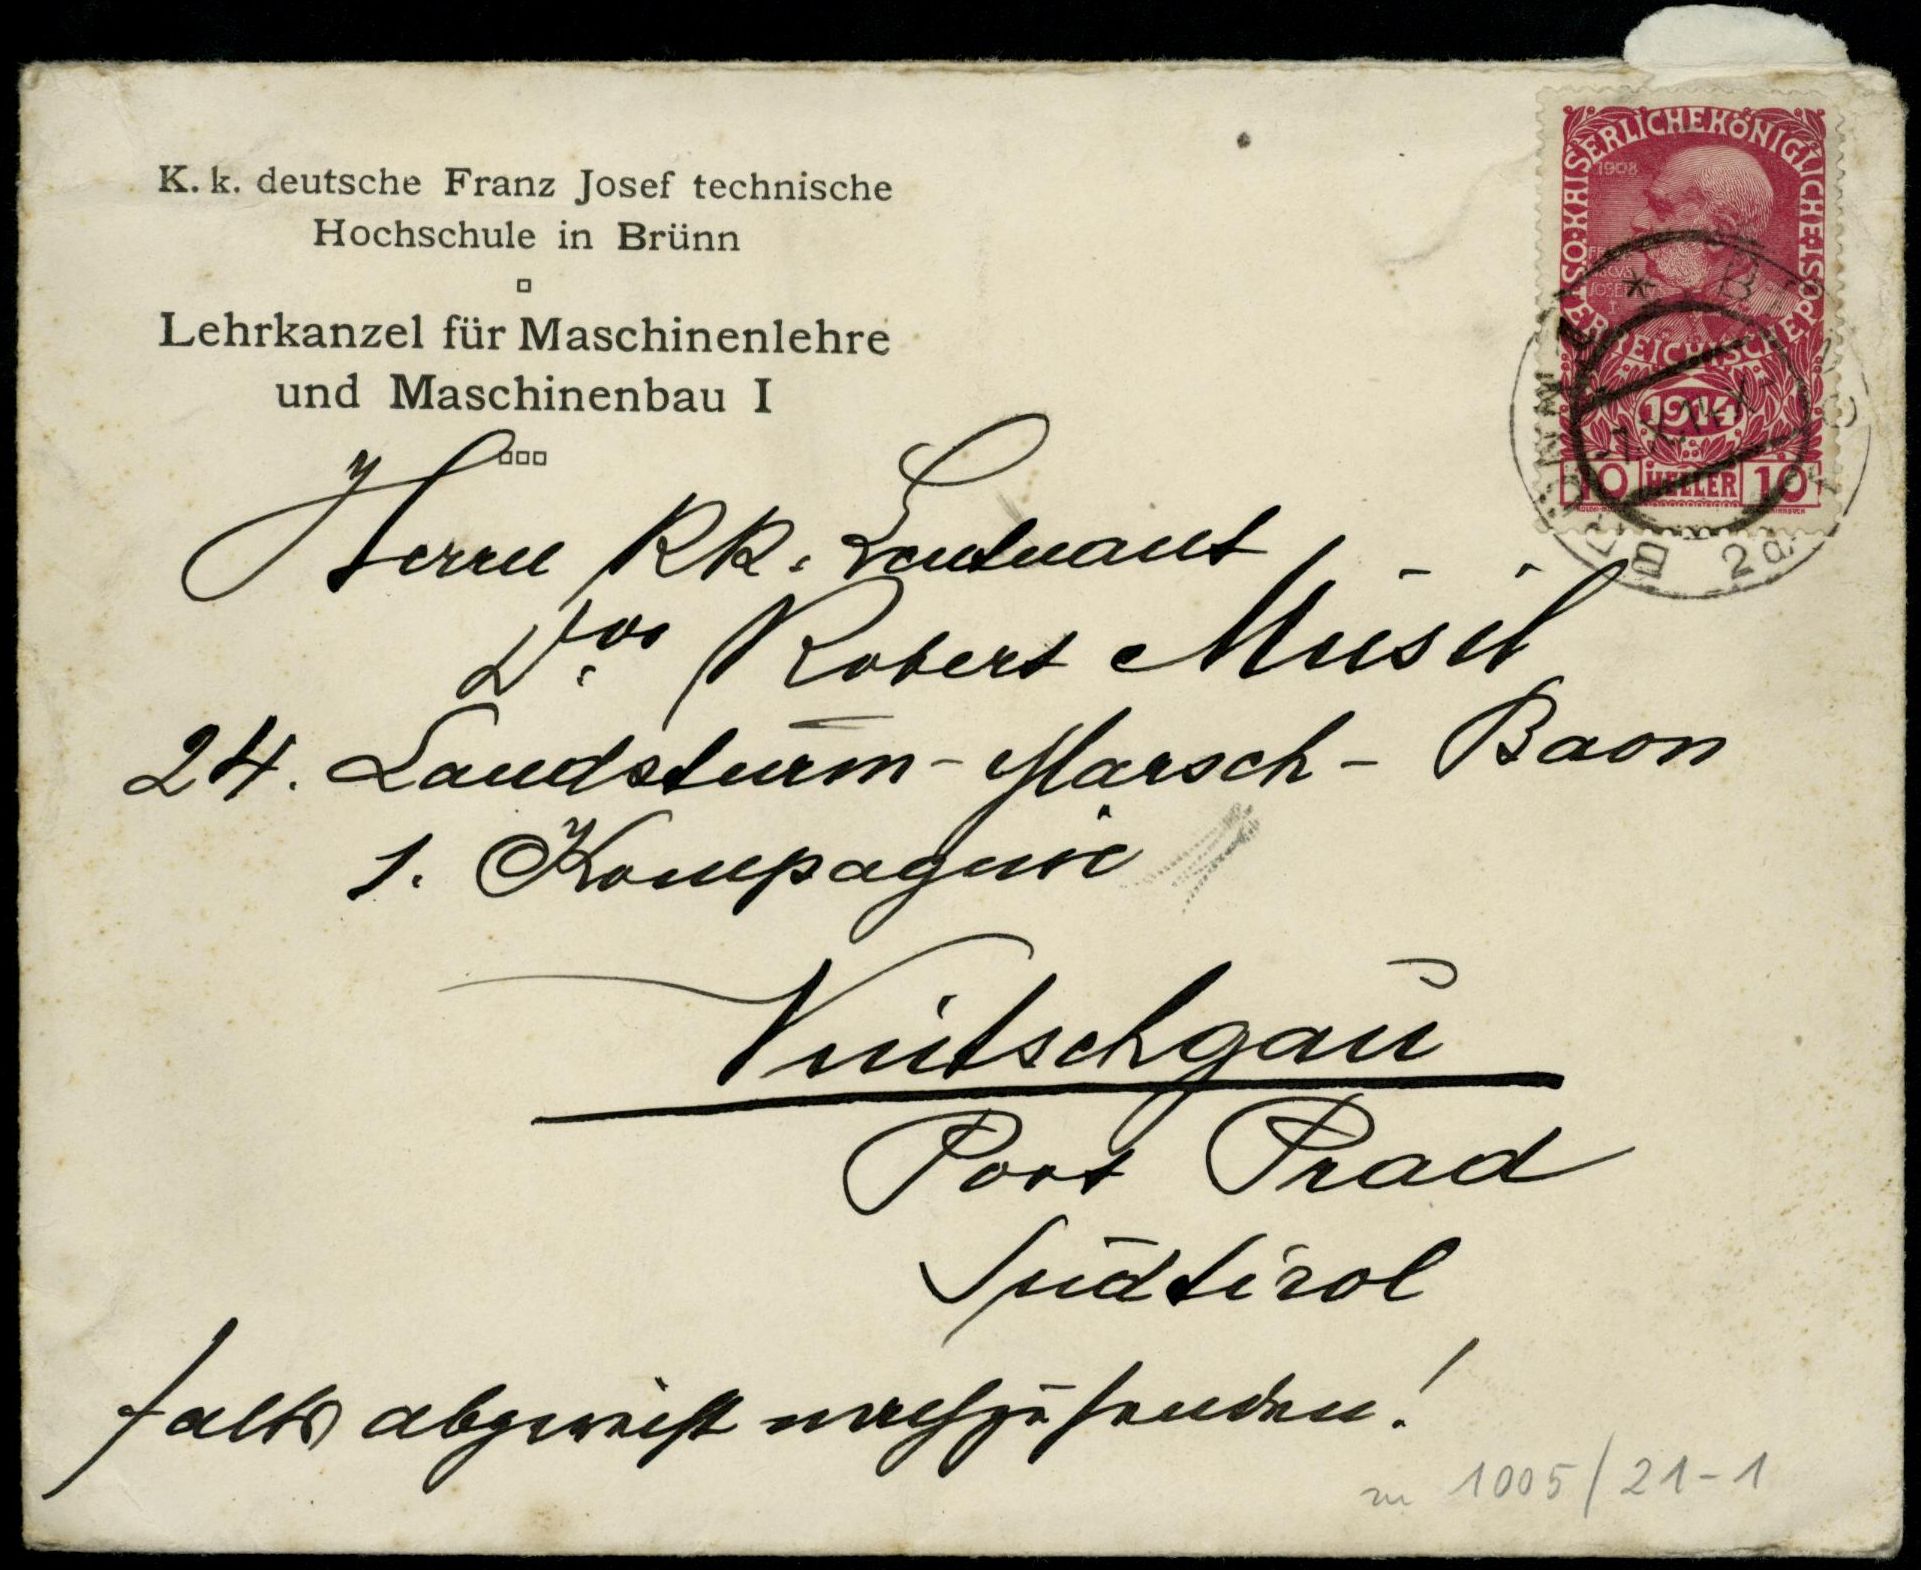 K. k. deutsche Franz Josef technische
Hochschule in Brünn
Lehrkanzel für Maschinenlehre
und Maschinenbau I
Herrn KK. Leutnant
Dor. Robert Musil
24. Landsturm-Marsch-Baon
1. Kompagnie
Vintschgau
Post Prad
Südtirol
falls abgereist nachzusenden!
zu 1005/21-1
KAISERLICHE KÖNIGLICHE ÖSTERREICHISCHE POST
1908
1914
10 HELLER 10